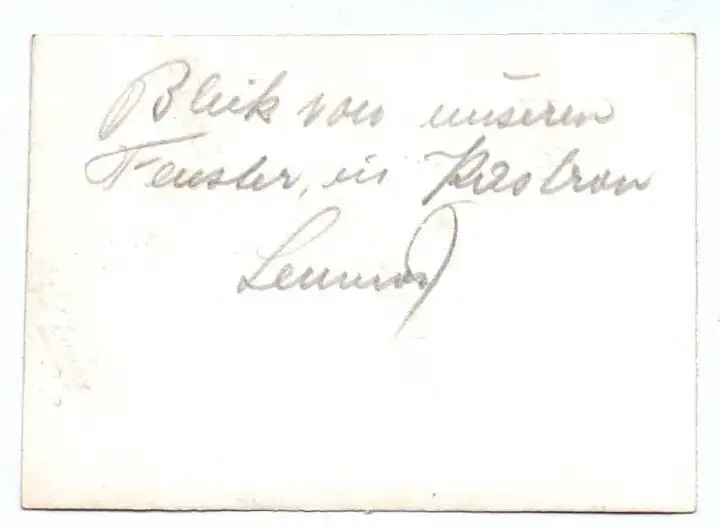 Blick von unseren
Fenster, in Kastron
Lemnos)